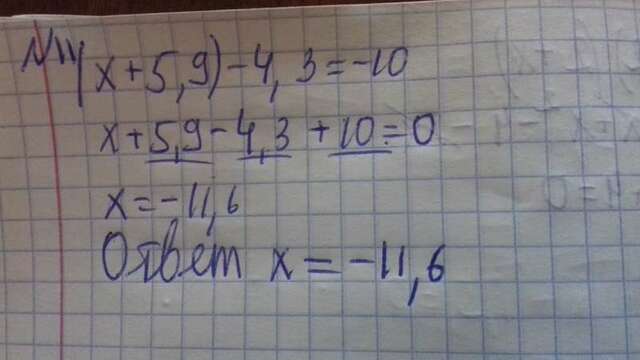 N11
(x+5,9)-4,3=-10
x+5,9-4,3+10=0
x=-11,6
Ответ x=-11,6